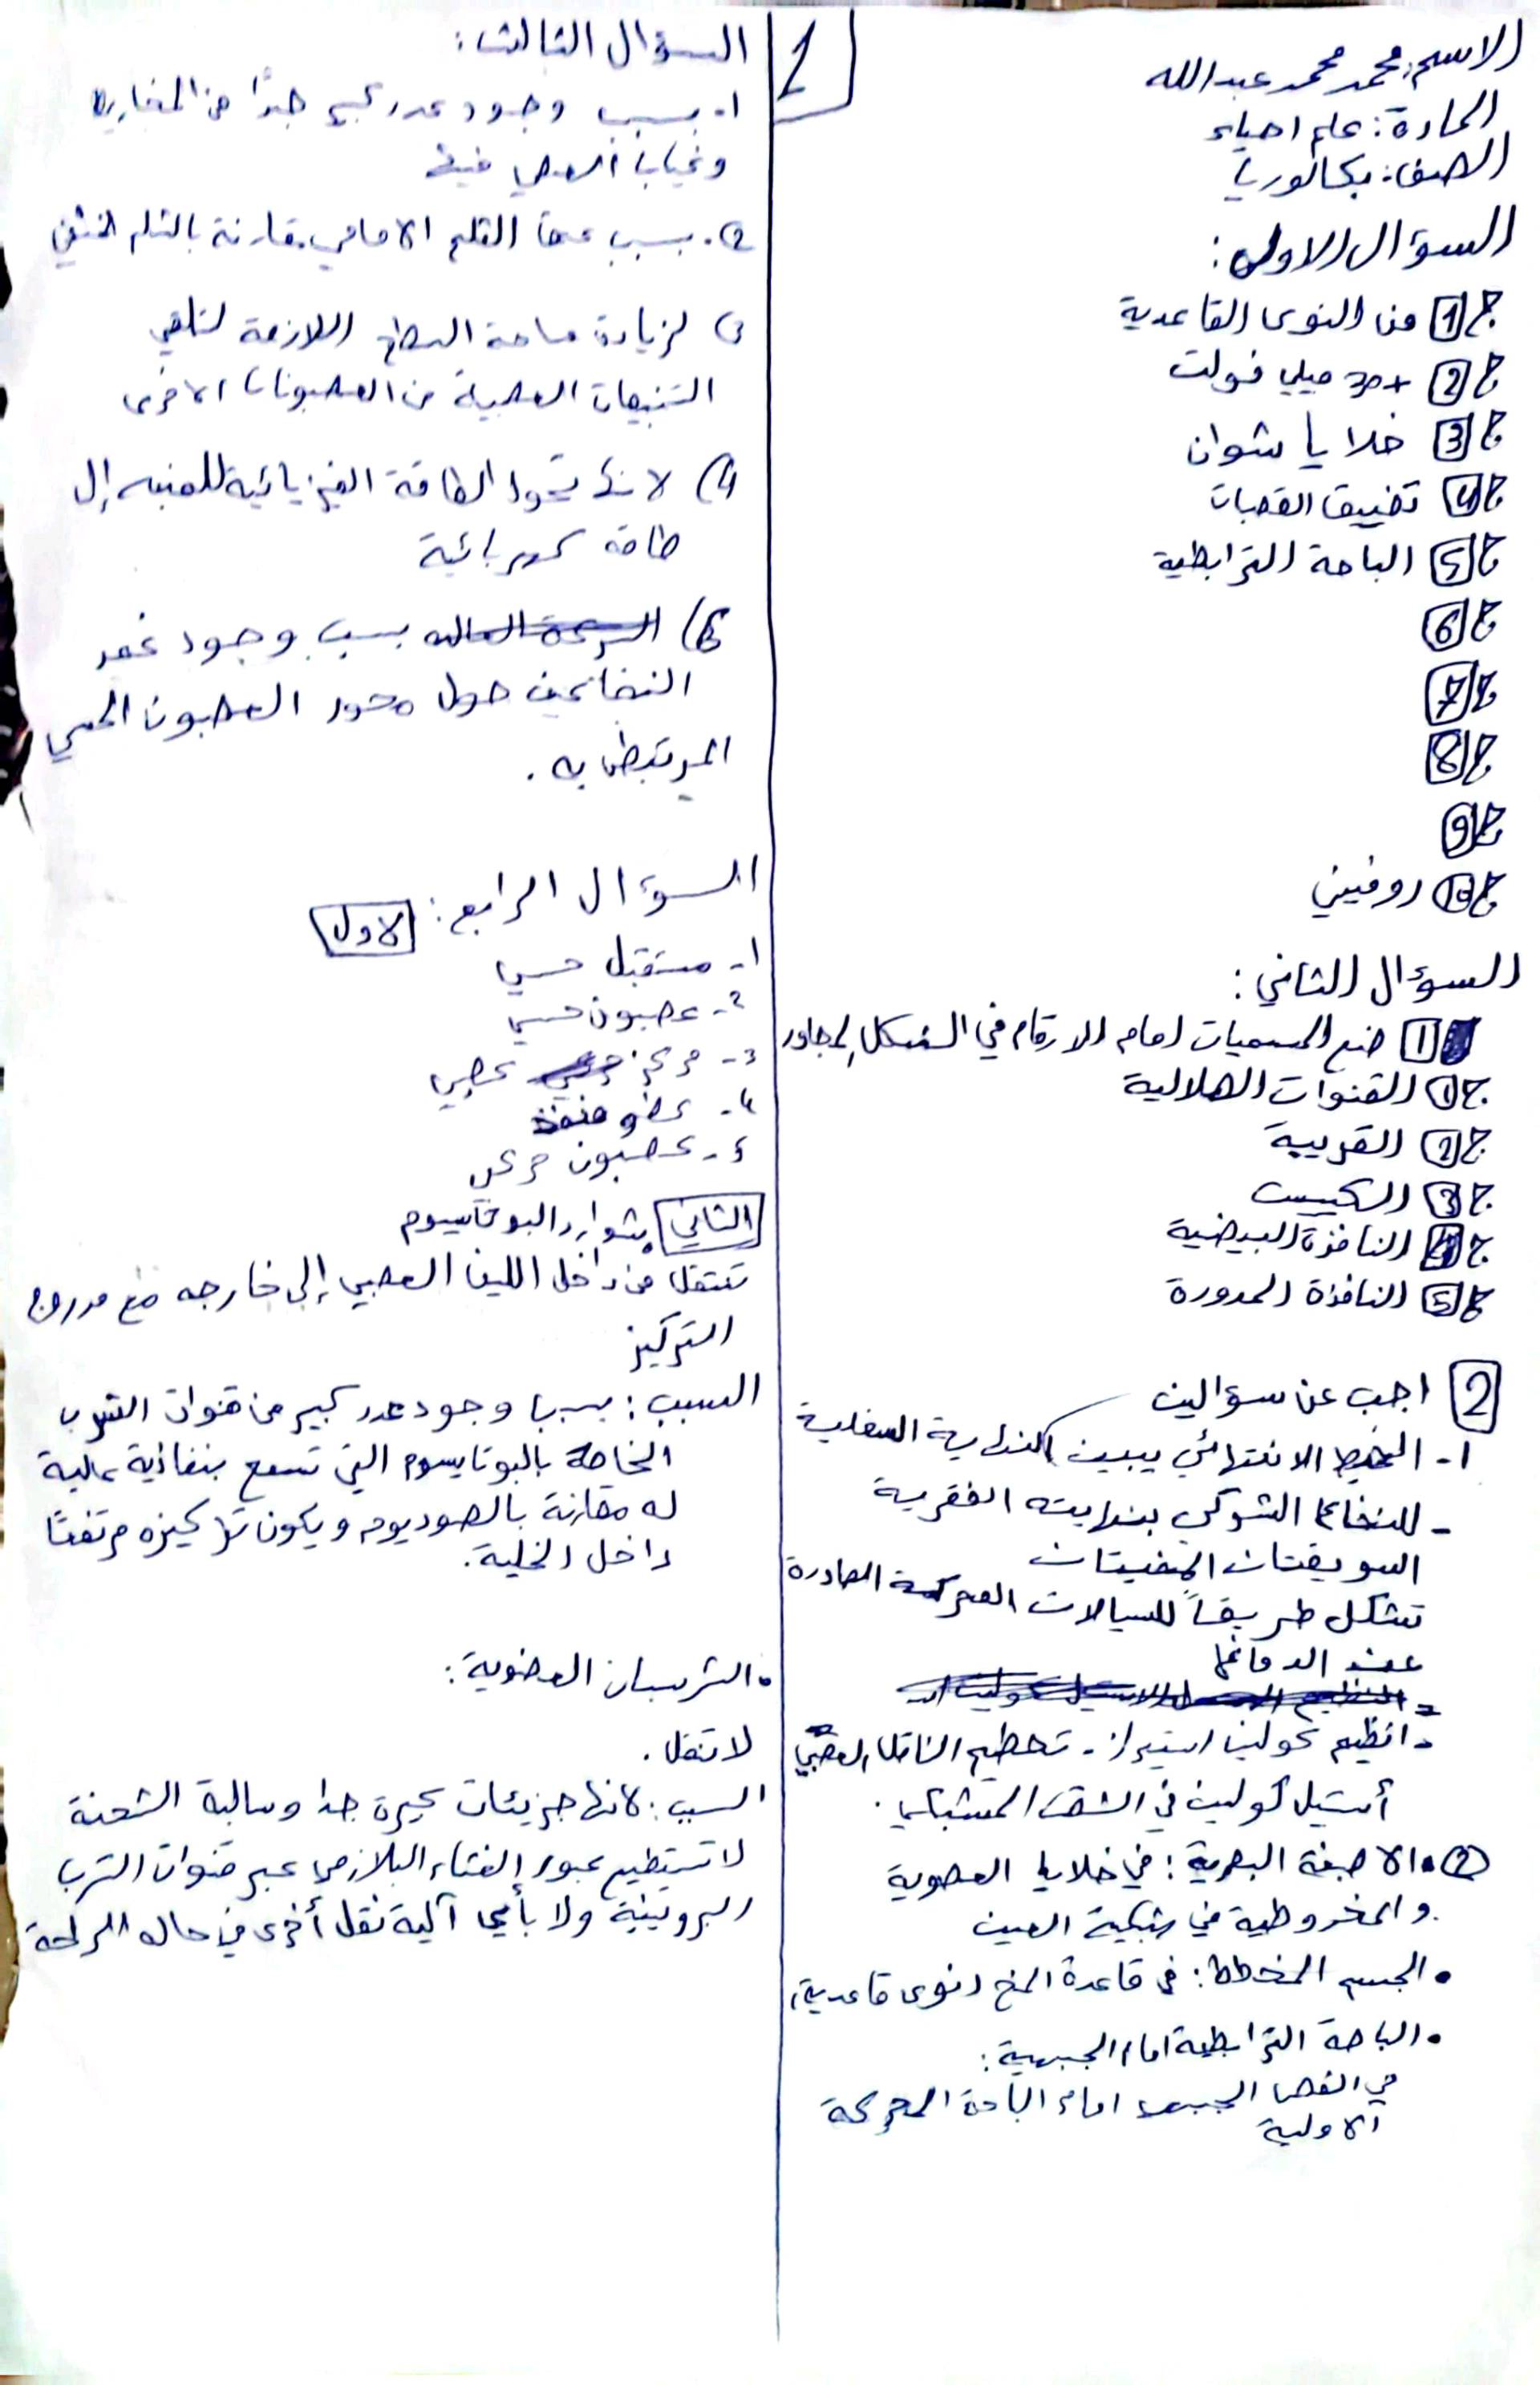 الاسم: محمد محمد عبدالله
المادة: علم احياء
الصف: بكالوريا
السؤال الاول:
ج1 من النوى القاعدية
ج2 +30 ميلي فولت
ج3 خلايا شوان
ج4 تضييق القصبات
ج5 الباحة الترابطية
ج6
ج7
ج8
ج9
ج10 روفيني
السؤال الثاني:
1 ضع المسميات امام الارقام في الشكل المجاور
ج1 القنوات الهلالية
ج2 القريبة
ج3 الكييس
ج4 النافذة البيضية
ج5 النافذة المدورة
2 اجب عن سؤالين
1- الخيط الانتهائي يبين النهاية السفلية
- للنخاع الشوكي بنهايته الفقرية
السويقتان المخيتان
تشكل طريقاً للسيالات المحركة الصادرة
عن الدماغ
- انظيم كولين استيراز - تحطيم الناقل العصبي
أستيل كولين في الشق المشبكي.
2 • الاصبغة البصرية: في خلايا العصوية
والمخروطية في شبكية العين
• الجسم المخطط: في قاعدة المخ (نوى قاعدية)
• الباحة الترابطية امام الجبهية:
في الفص الجبهي امام الباحة المحركة
الاولية
1
السؤال الثالث:
1. بسبب وجود عدد كبير جداً من
وغياب العصي فيها
2. بسبب عمق الثلم الامامي مقارنة بالثلم الخلفي
3) لزيادة مساحة السطح اللازمة لتلقي
التنبيهات العصبية من العصبونات الاخرى
4) لانها تحول الطاقة الفيزيائية للمنبه إلى
طاقة كهربائية
5) بسبب وجود غمد
النخاعين حول محور العصبون الحسي
المرتبط به.
السؤال الرابع: الاول
1- مستقبل حسي
2- عصبون حسي
3- مركز عصبي
4- عضو منفذ
5- عصبون حركي
الثاني شوارد البوتاسيوم
تنتقل من داخل الليف العصبي إلى خارجه مع مدروج
التركيز
السبب: بسبب وجود عدد كبير من قنوات التسرب
الخاصة بالبوتاسيوم التي تسمح بنفاذية عالية
له مقارنة بالصوديوم ويكون تركيزه مرتفعاً
داخل الخلية.
• الشرسبات العضوية:
لا تنتقل.
السبب: لانها جزيئات كبيرة جدا وسالبة الشحنة
لا تستطيع عبور الغشاء البلازمي عبر قنوات التسرب
البروتينية ولا بأي آلية نقل أخرى في حالة الراحة